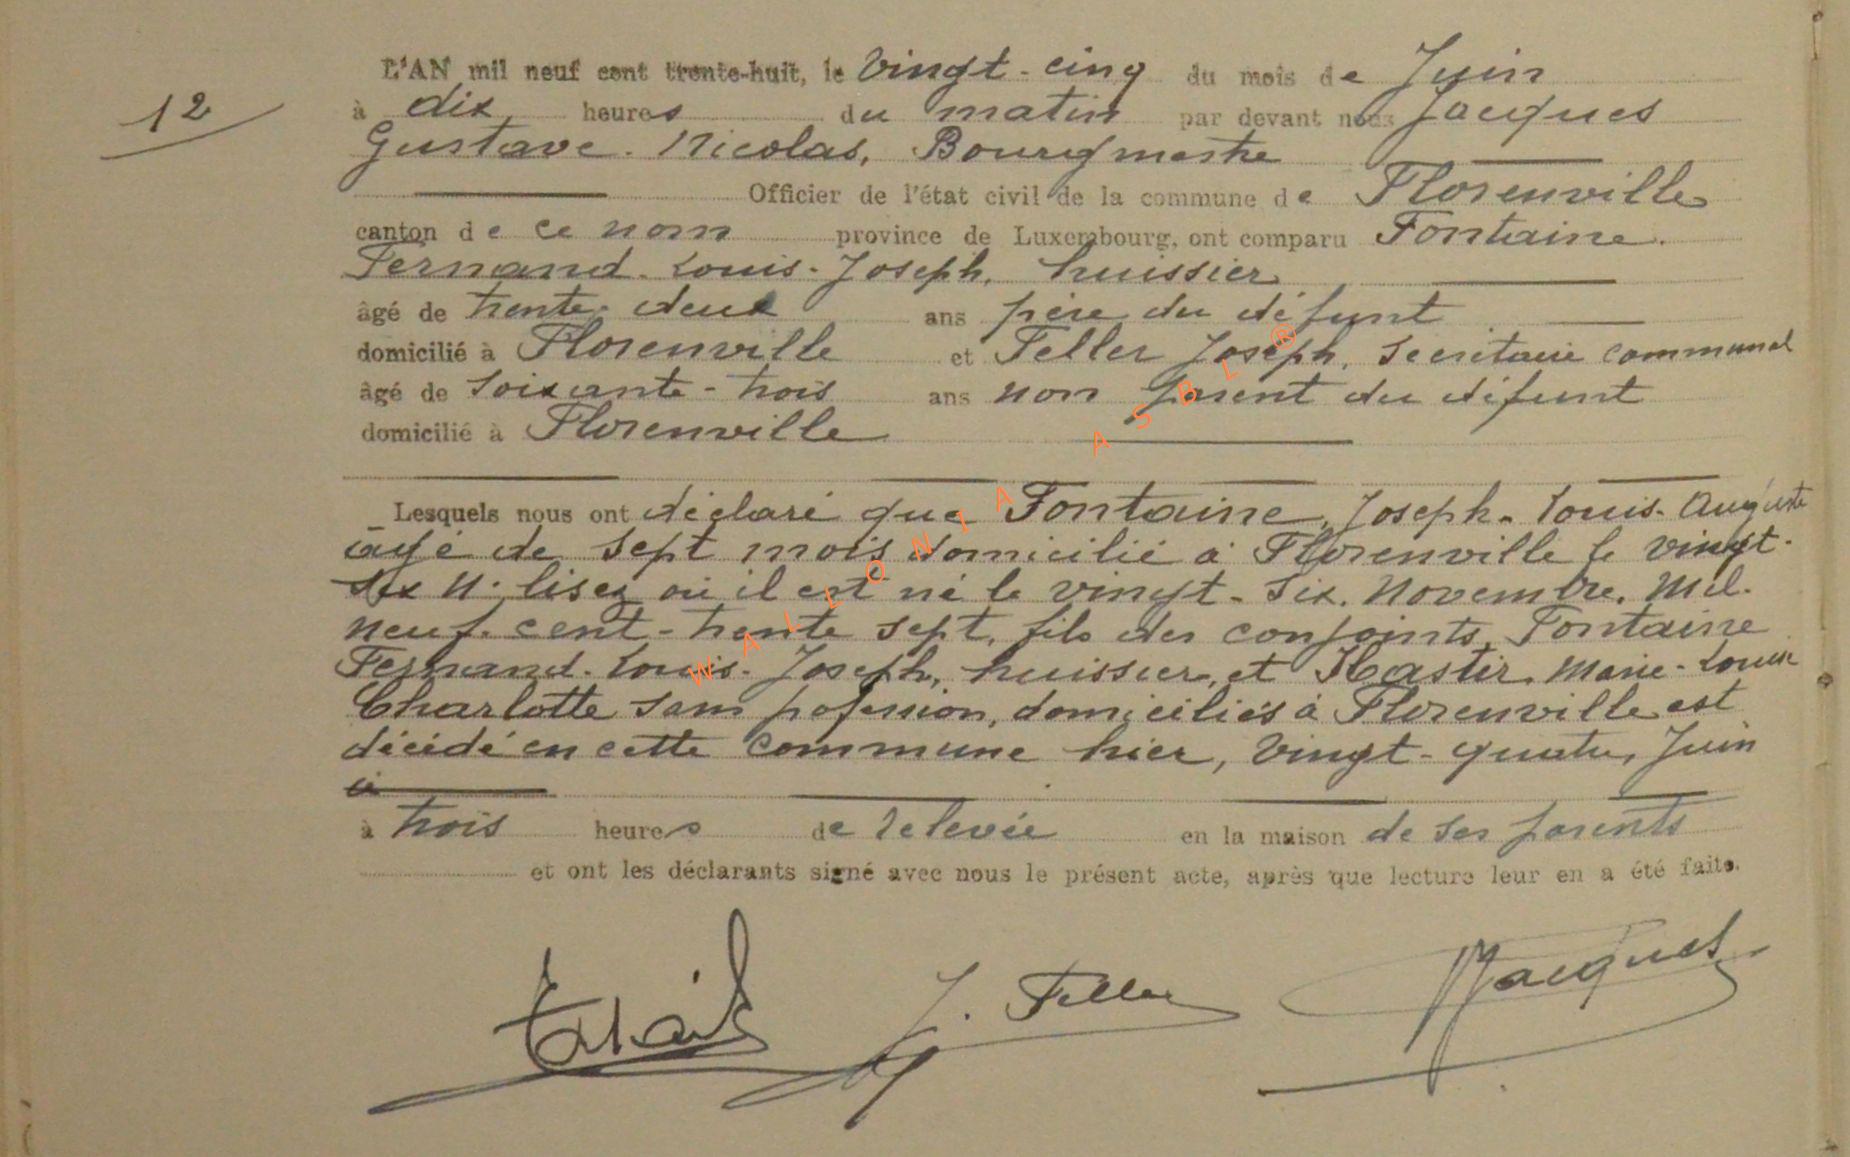 12
L'AN mil neuf cent trente-huit, le Vingt-cinq du mois de Juin
à dix heures du matin par devant nous Jacques
Gustave. Nicolas, Bourgmestre
Officier de l'état civil de la commune de Florenville
canton de ce nom province de Luxembourg, ont comparu Fontaine.
Fernand. Louis. Joseph, huissier
âgé de trente-deux ans père du défunt
domicilié à Florenville et Feller Joseph, Secrétaire communal
âgé de soixante-trois ans non parent du défunt
domicilié à Florenville
Lesquels nous ont déclaré que Fontaine, Joseph. Louis. Auguste
âgé de sept mois domicilié à Florenville le vingt-
six N. lisez où il est né le vingt-six. Novembre. Mil.
neuf. cent-trente sept, fils des conjoints Fontaine
Fernand. Louis. Joseph, huissier, et Hastir, Marie-Louise
Charlotte sans profession, domiciliés à Florenville est
décédé en cette commune hier, Vingt-quatre, Juin
à trois heures de relevée en la maison de ses parents
et ont les déclarants signé avec nous le présent acte, après que lecture leur en a été faite.
J. Feller
Jacques
WALLONIA ASBL ®